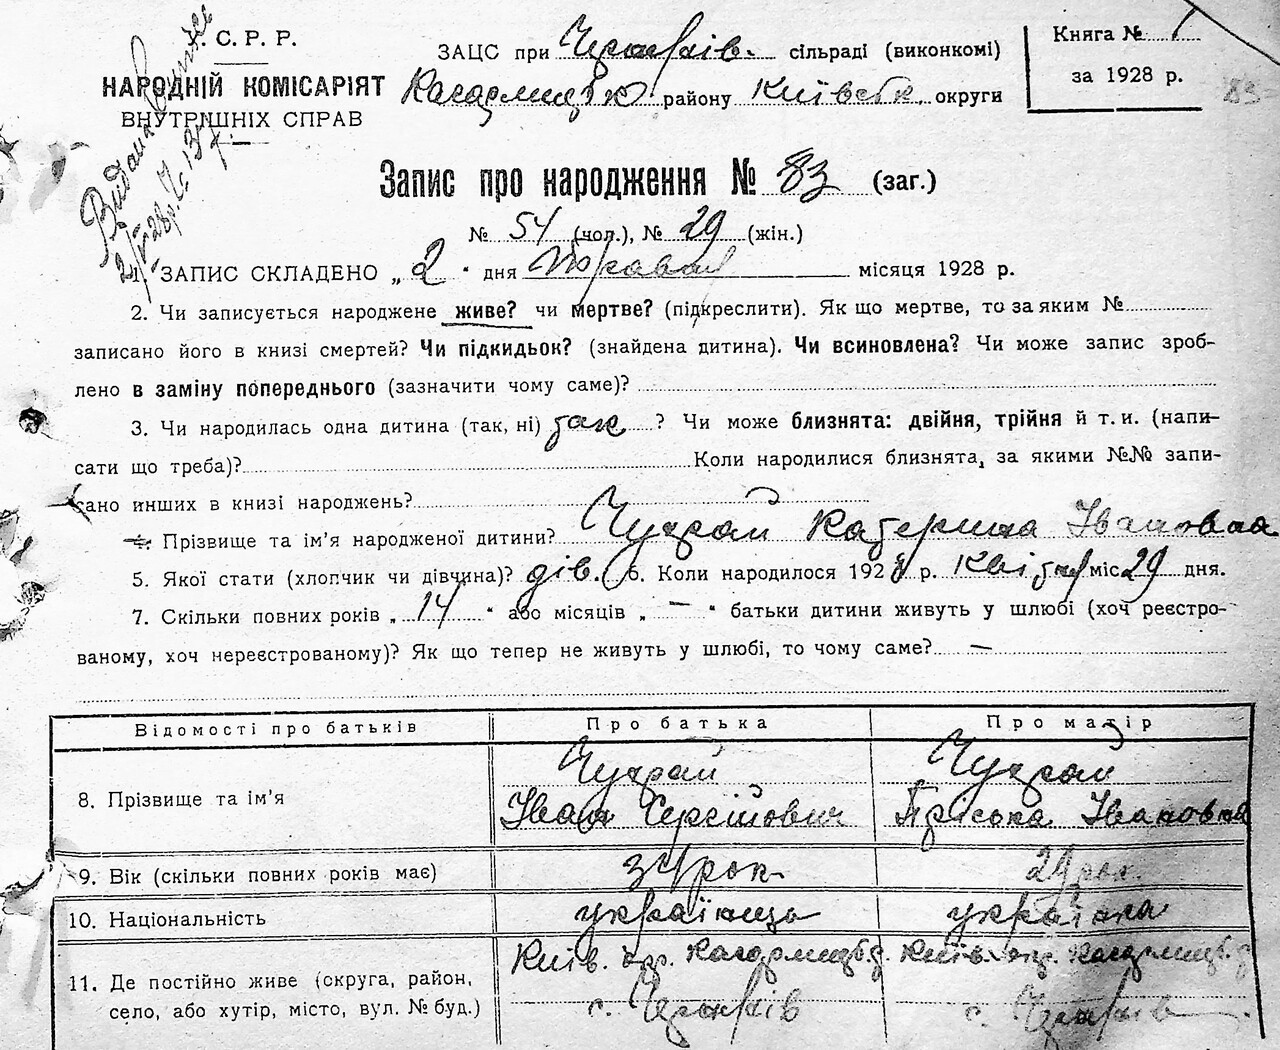 У. С. Р. Р.
НАРОДНІЙ КОМІСАРІЯТ
ВНУТРІШНІХ СПРАВ
Видана
ЗАЦС при сільраді (виконкомі)
Кагарлицьк району Київськ. округи
Книга № 1
за 1928 р.
83
Запис про народження № 83 (заг.)
№ 54 (чол.), № 29 (жін.)
1. ЗАПИС СКЛАДЕНО „ 2 " дня Травня місяця 1928 р.
2. Чи записується народжене живе? чи мертве? (підкреслити). Як що мертве, то за яким №
записано його в книзі смертей? Чи підкидьок? (знайдена дитина). Чи всиновлена? Чи може запис зроб-
лено в заміну попереднього (зазначити чому саме)?
3. Чи народилась одна дитина (так, ні) так ? Чи може близнята: двійня, трійня й т. и. (напи-
сати що треба)? Коли народилися близнята, за якими №№ запи-
сано инших в книзі народжень?
4. Прізвище та ім'я народженої дитини? Чухрай Катерина Івановна
5. Якої стати (хлопчик чи дівчина)? дів. 6. Коли народилося 1928 р. Квітня міс 29 дня.
7. Скільки повних років „ 14 " або місяців „ — " батьки дитини живуть у шлюбі (хоч реєстро-
ваному, хоч нереєстрованому)? Як що тепер не живуть у шлюбі, то чому саме? —
Відомості про батьків Про батька Про матір
8. Прізвище та ім'я Чухрай Чухрай
Іван Сергійович Пріська Івановна
9. Вік (скільки повних років має) 34 рок. 29 рок.
10. Національність українць українка
11. Де постійно живе (округа, район, Київ. окр. Кагарлицьк. Київ. окр. Кагарлицьк.
село, або хутір, місто, вул. № буд.) с. с.